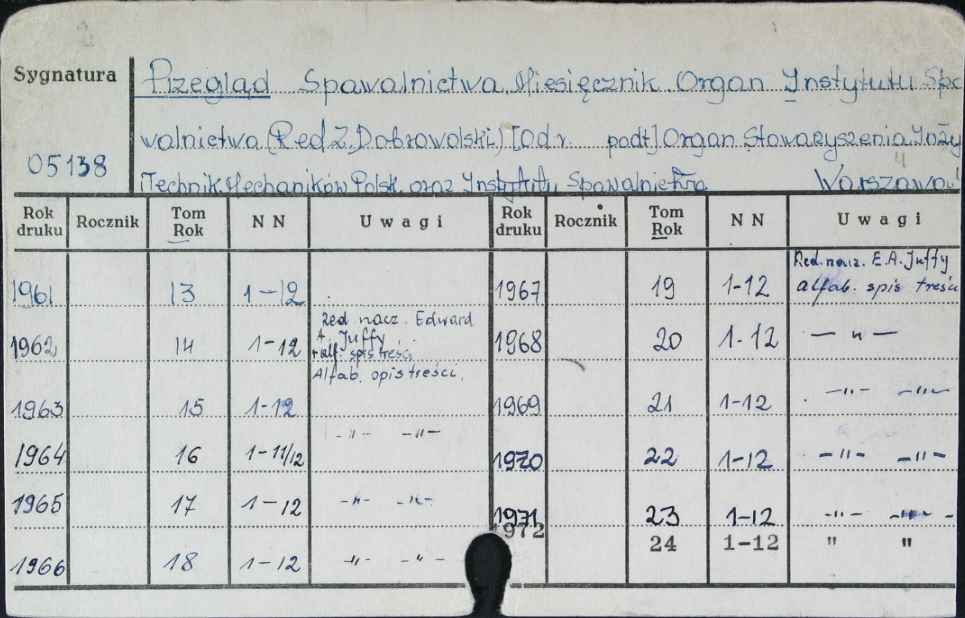 Sygnatura
Przegląd Spawalnictwa. Miesięcznik. Organ Instytutu Spa
walnictwa (Red. Z. Dobrowolski) [Od r. podt] Organ Stowarzyszenia Inży
05138
Technik. Mechaników Polsk. oraz Instytutu Spawalnictwa Warszawa
Rok druku Rocznik Tom Rok N N Uwagi Rok druku Rocznik Tom Rok N N Uwagi
1961 13 1-12 1967 19 1-12 Red. nacz. E.A. Juffy
alfab. spis treści
1962 14 1-12 Red nacz. Edward
A. Juffy
+ alf. spis treści
Alfab. spis treści.
1968 20 1-12 — " —
1963 15 1-12 1969 21 1-12 —"— —"—
1964 16 1-11/12 -"- -"- 1970 22 1-12 -"- -"-
1965 17 1-12 -"- -"- 1971 23 1-12 -"- -"-
1972 24 1-12 " "
1966 18 1-12 -"- -"-